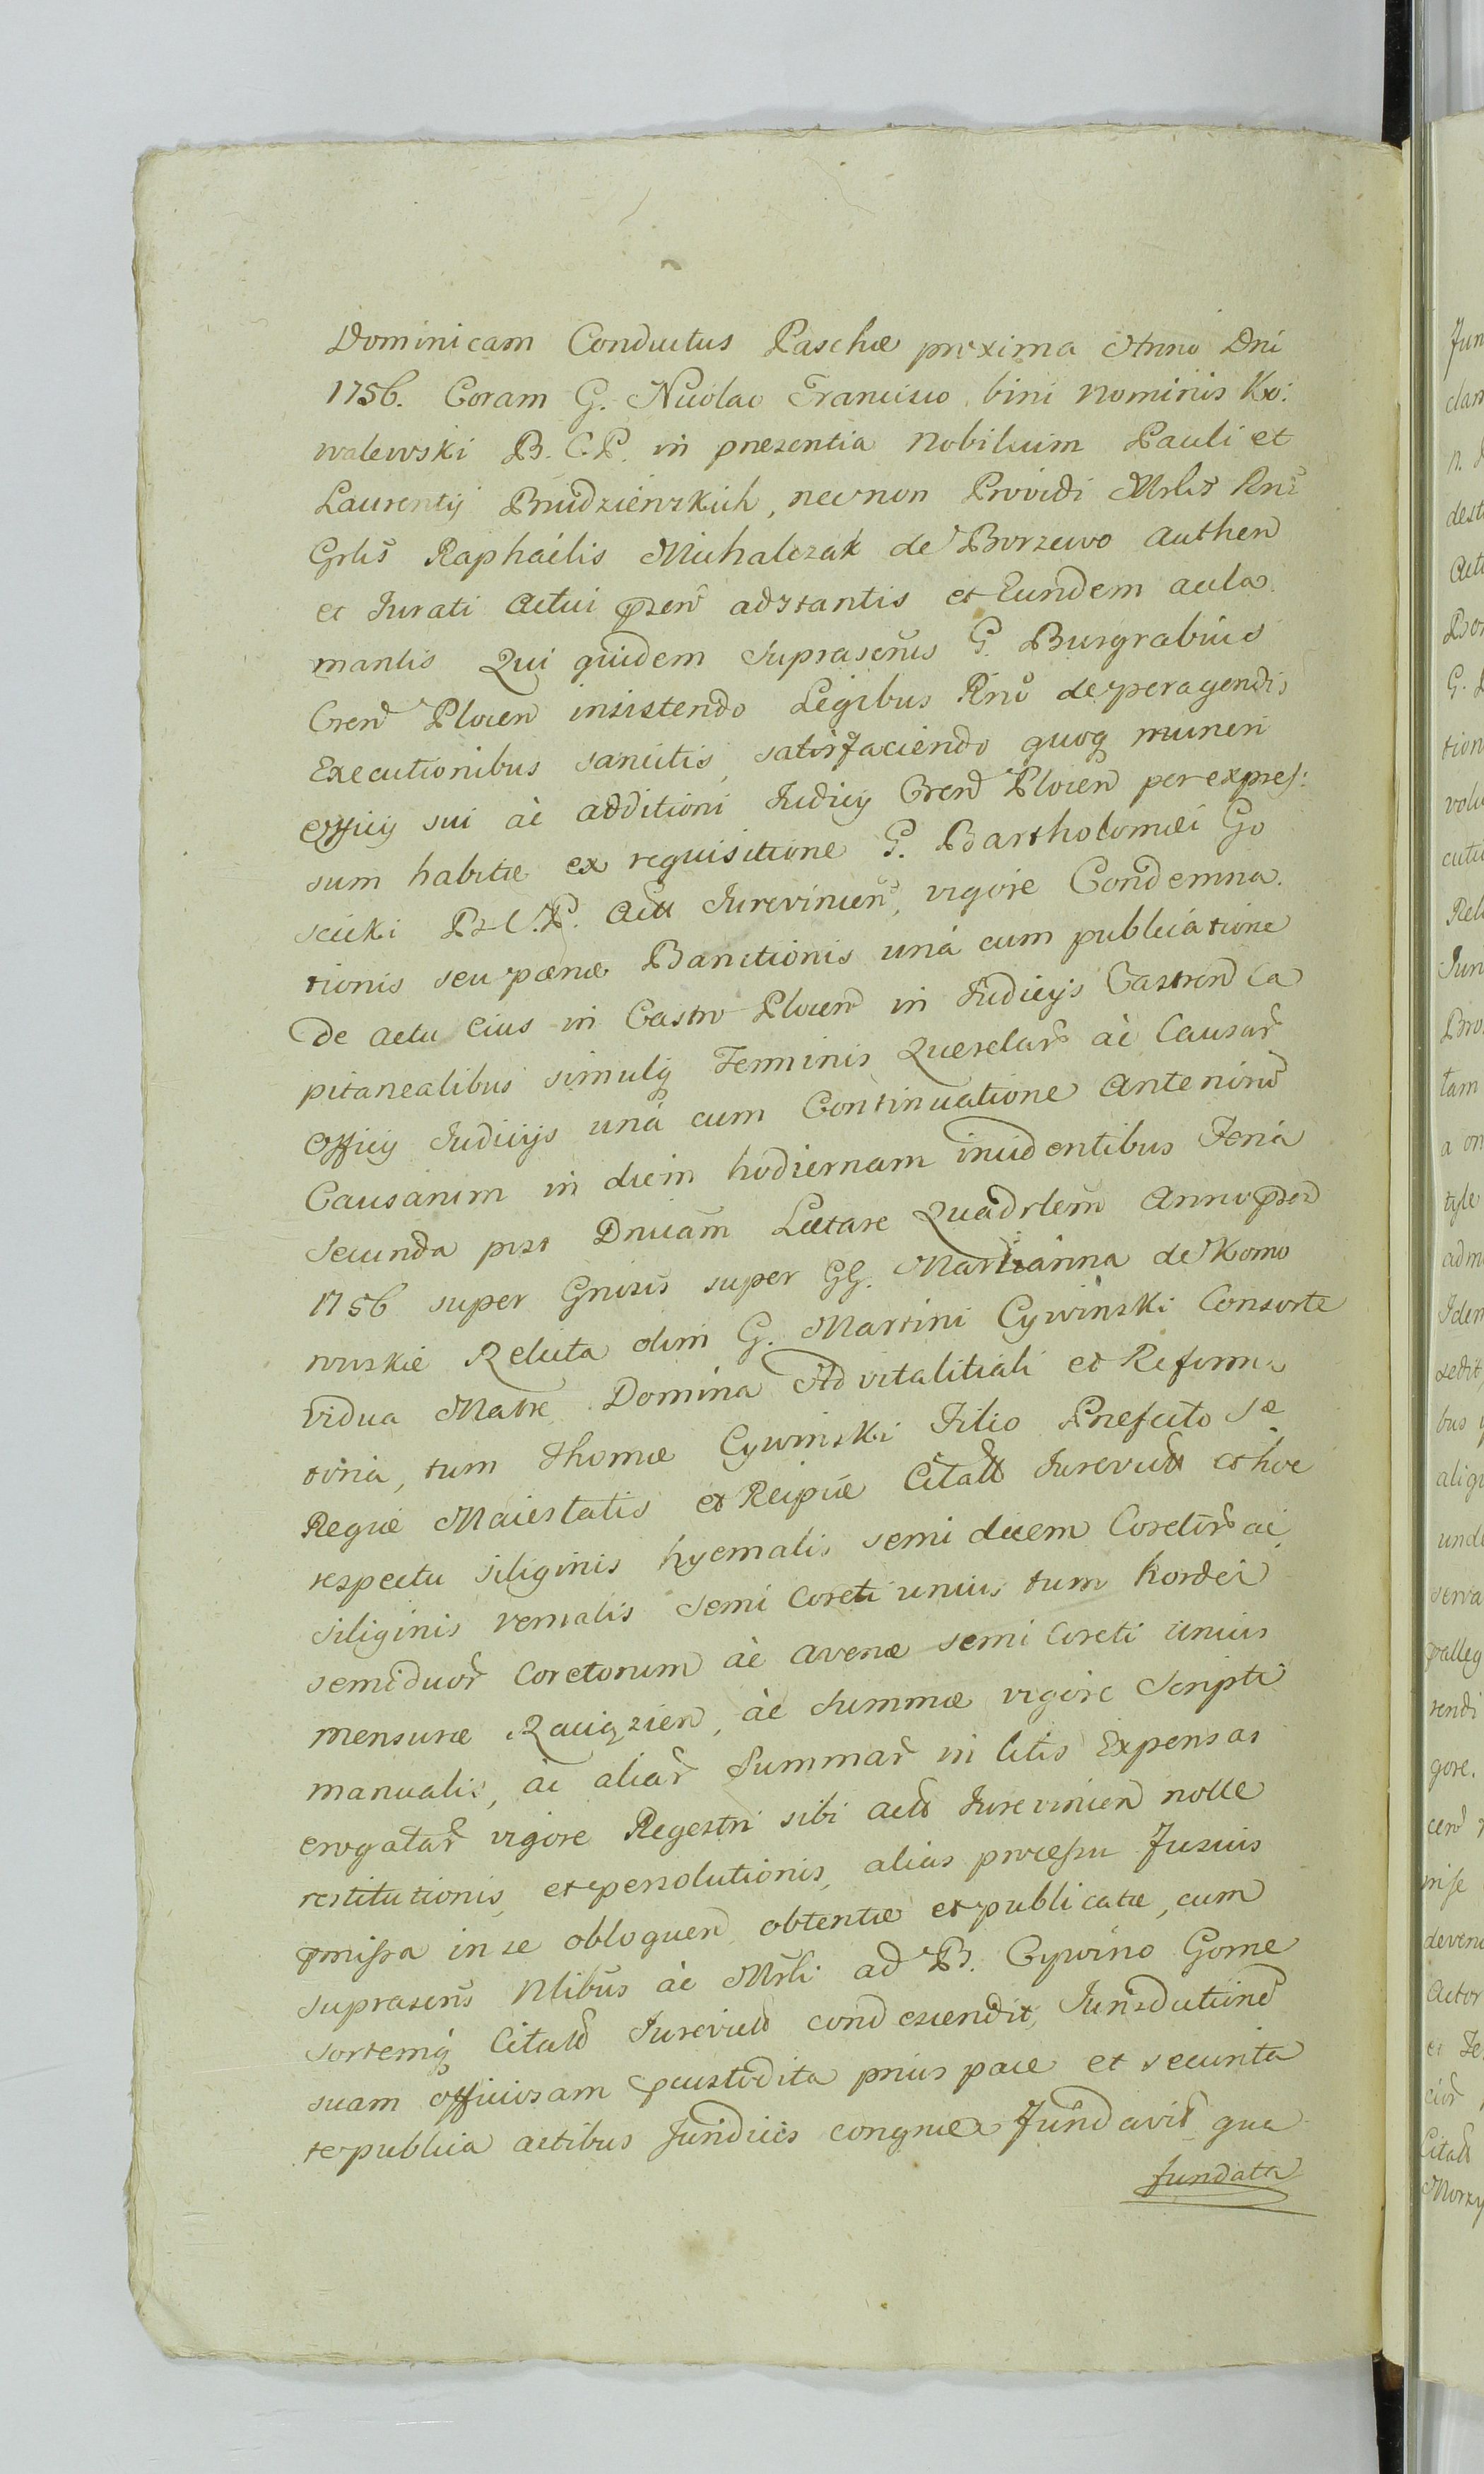 Dominicam Conductus Paschæ proxima Anno Dni
1756. Coram G. Nicolao Francisco bini nominis Ko:
walewski B. C. P. in præsentia Nobilium Pauli et
Laurentij Brudzienskich, necnon Providi Mrlis Rni
Grlis Raphaelis Michalczak de Borzewo authen
et Jurati actui pzen adstantis et Eundem acla
mantis Qui quidem Suprascrius G. Burgrabius
Cren Plocen insistendo Legibus Rni de peragendis
Executionibus sancitis, satisfaciendo quoq muneri
Officij sui ac additioni Judicij Cren Plocen per expres:
sum habitæ ex requisitione G. Bartholomæi Go
scicki P C. P. Act Jurevincen, vigore Condemna.
tionis seu pænæ Banctionis una cum publicatione
De actu eius in Castro Plocen in Judicijs Castren Ca
pitanealibus simulq Terminis Querelar ac Causar
Officij Judicijs una cum Continuatione Anterior
Causarum in diem hodiernam incidentibus Feria
Secunda post Dnicam Lætare Quadrlem Anno pzen
1756 super Gnisis super GG. Marianna de Komo
rowskie Relicta olim G. Martini Cywinski Consorte
vidua Matre Domina Advitalitiali et Reforma
toria, tum Thomæ Cywinski Filio Præfecto Sæ
Regiæ Maiestatis et Reipcæ Citatt Jurevict et hoc
respectu siliginis hyemalis semi decem Coretor ac
siliginis vernalis semi Coreti unius tum hordei
semiduor Coretorum ac avenæ semi Coreti unius
mensuræ Raciązien, ac Summæ vigore Scripti
manualis, ac aliar Summar in litis Expensas
erogatar vigore Regestri sibi actt Jurevincen nolle
restitutionis, et persolutionis, alias processu Fusius
pmissa in se obloquen obtentæ et publicatæ, cum
suprascris Nlibus ac Mrli ad B. Cywino Gorne
Sortemq Citatt Jurevict condescendit, Jurisdictione
suam officiosam pcustodita prius pace et securita
te publica actibus Juridicis congruex Fundavit qua
fundata